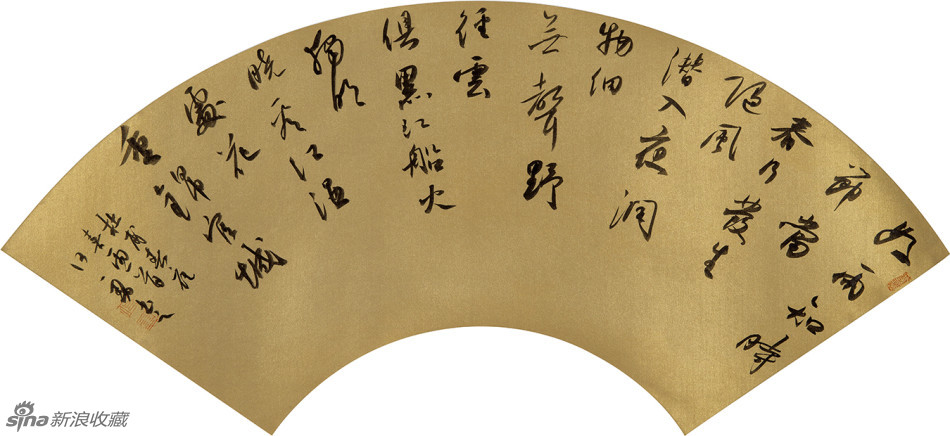 好雨知時
節當
春乃發生
随風
潛入夜潤
物細
無聲野
徑雲
俱黑江船火
獨明
曉看紅濕
處花
重錦官城
杜甫春夜
喜雨一首
sina新浪收藏